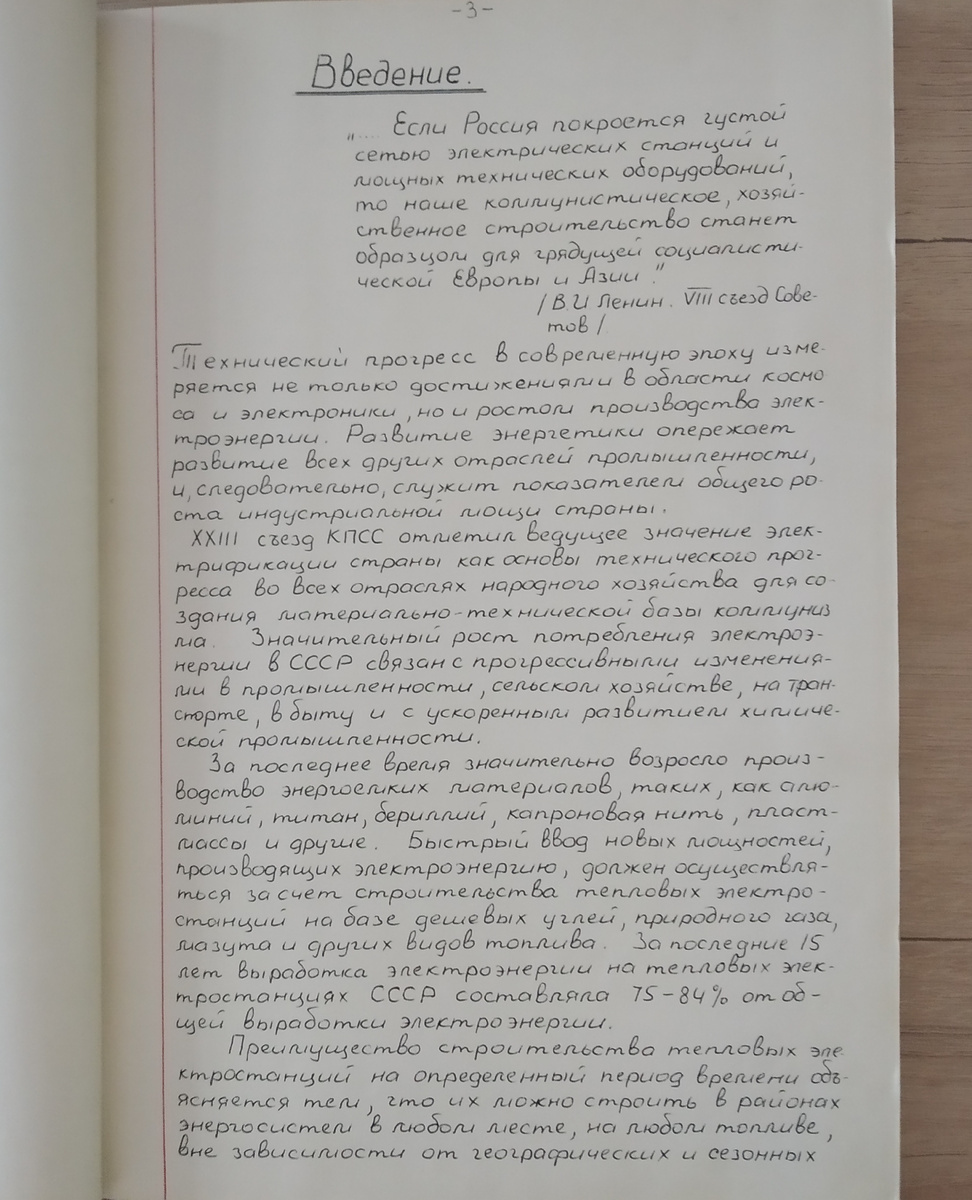 -3-
Введение.
".... Если Россия покроется густой
сетью электрических станций и
мощных технических оборудований,
то наше коммунистическое, хозяй-
ственное строительство станет
образцом для грядущей социалисти-
ческой Европы и Азии "
/В.И Ленин. VIII съезд Сове-
тов/
Технический прогресс в современную эпоху изме-
ряется не только достижениями в области космо
са и электроники, но и ростом производства элек-
троэнергии. Развитие энергетики опережает
развитие всех других отраслей промышленности,
и, следовательно, служит показателем общего ро-
ста индустриальной мощи страны.
XXIII съезд КПСС отметил ведущее значение элек-
трификации страны как основы технического прог-
ресса во всех отраслях народного хозяйства для со-
здания материально-технической базы коммуниз
ма. Значительный рост потребления электроэ-
нергии в СССР связан с прогрессивными изменения-
ми в промышленности, сельском хозяйстве, на тран-
спорте, в быту и с ускоренным развитием химиче-
ской промышленности.
За последнее время значительно возросло произ-
водство энергоемких материалов, таких, как алю-
миний, титан, бериллий, капроновая нить, пласт-
массы и другие. Быстрый ввод новых мощностей,
производящих электроэнергию, должен осуществля-
ться за счет строительства тепловых электро-
станций на базе дешевых углей, природного газа,
мазута и других видов топлива. За последние 15
лет выработка электроэнергии на тепловых элек-
тростанциях СССР составляла 75-84% от об-
щей выработки электроэнергии.
Преимущество строительства тепловых эле
ктростанций на определенный период времени объ-
ясняется тем, что их можно строить в районах
энергосистем в любом месте, на любом топливе,
вне зависимости от географических и сезонных